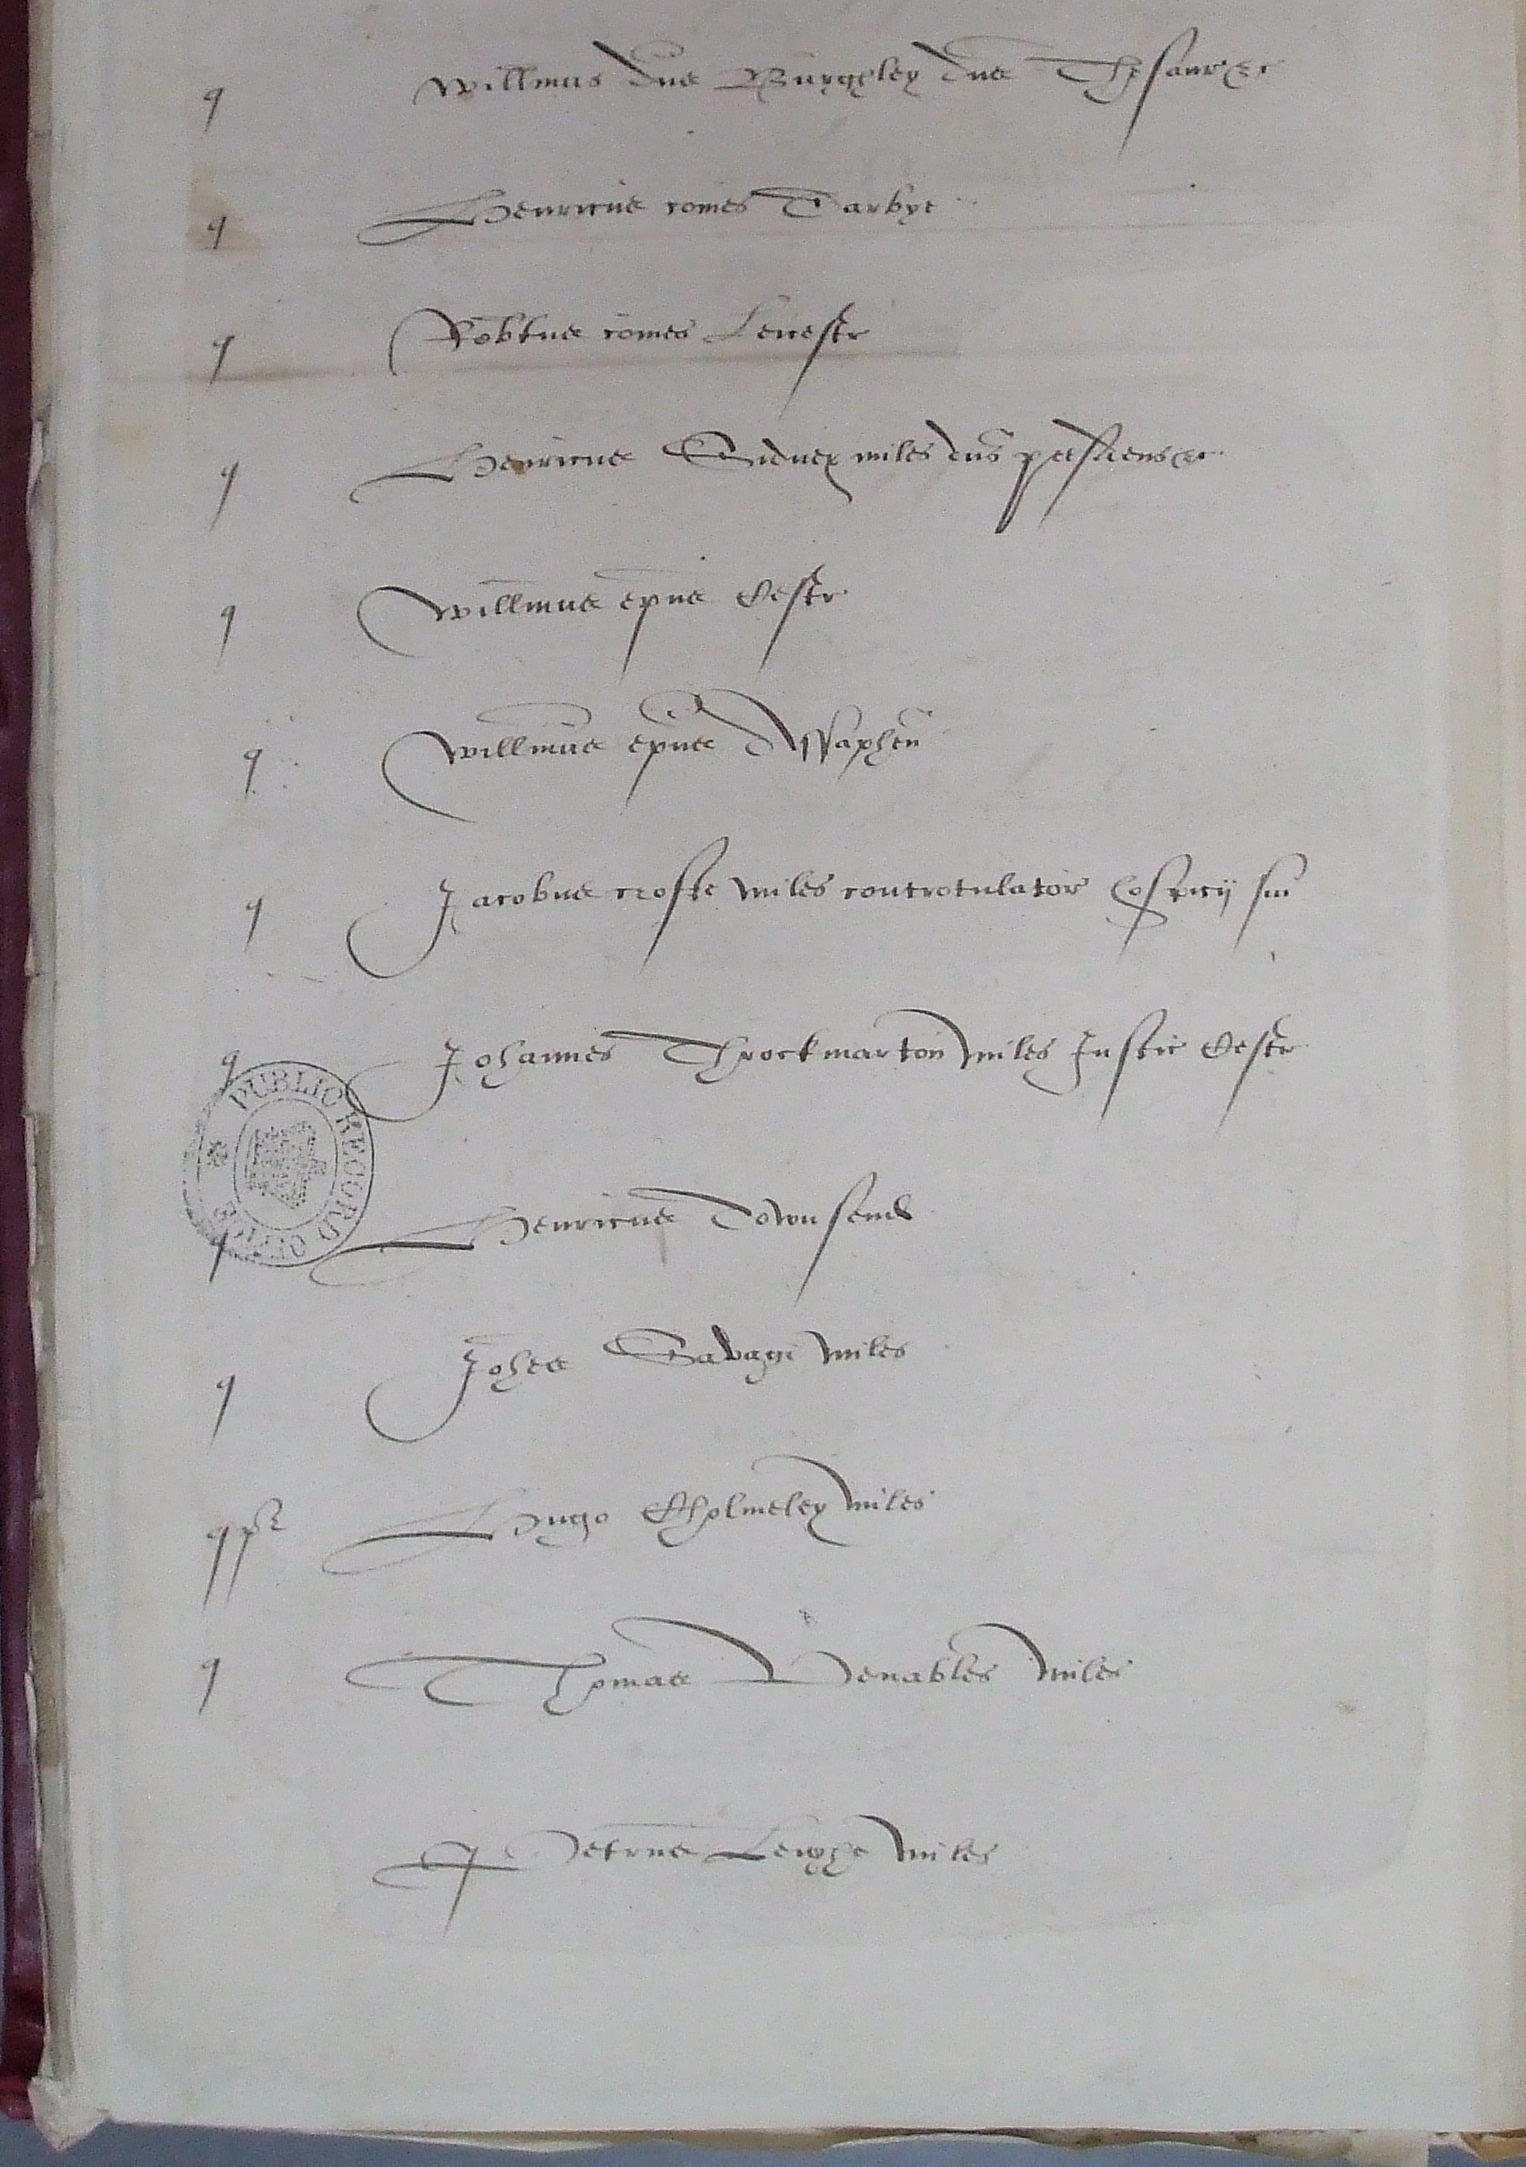 q Willmus dns Burghley dns Thesaur &c
q Henricus comes Darbye
q Robtus comes Lecestr
q Henricus Sidney miles dns presidens &c
q Willmus epus Cestr
q Willmus epus Assaphen
q Jacobus Crofte miles controtulator hospicij sui
q Johannes Throckmarton miles Justic Cestr
PUBLIC RECORD OFFICE
q Henricus Townsend
q Johes Savage miles
q Hugo Cholmeley miles
q Thomas Venables miles
Petrus Leighe miles